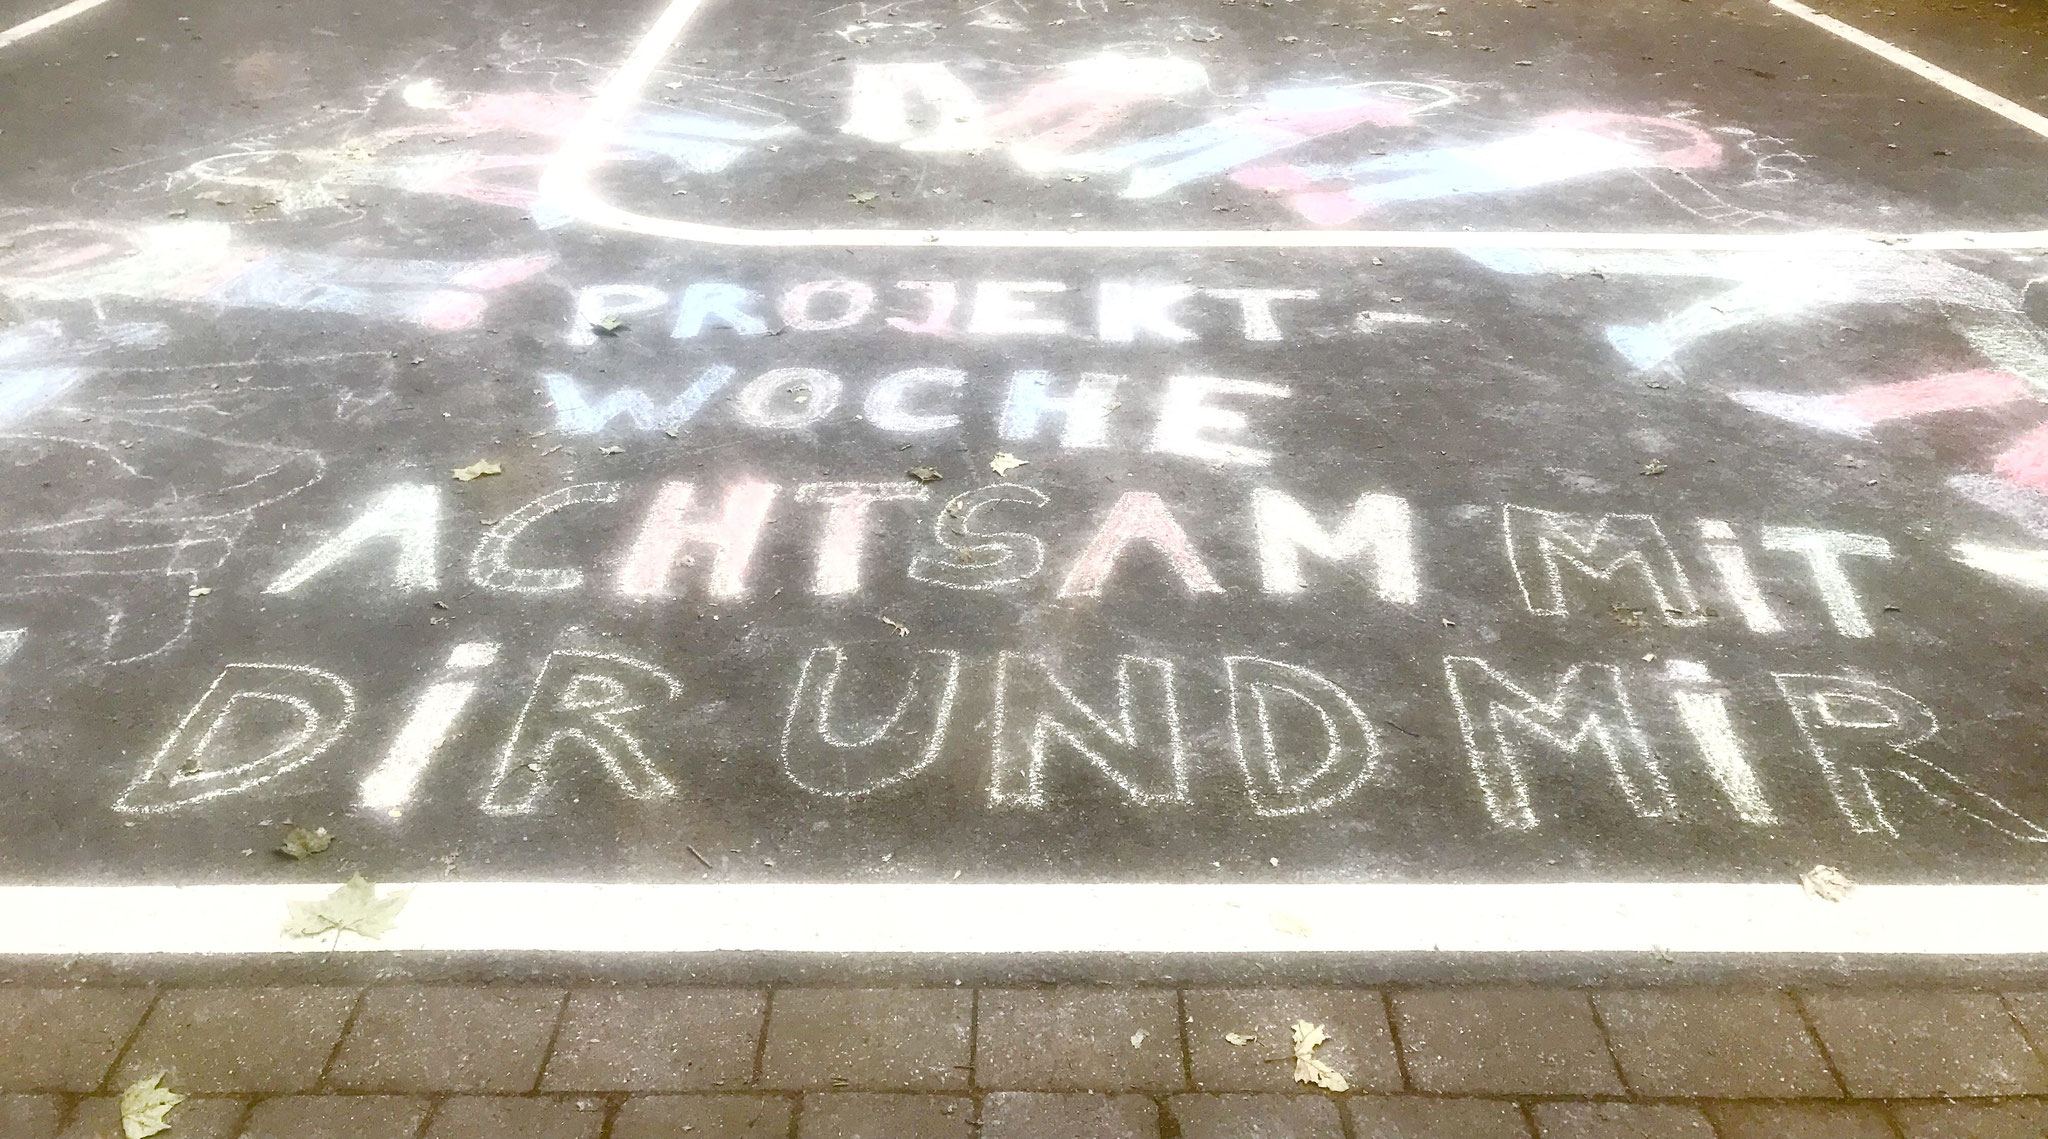 PROJEKT-
WOCHE
ACHTSAM MiT
DiR UND MiR